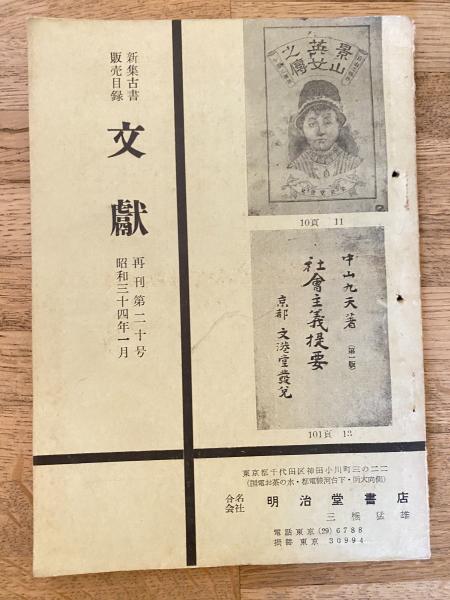 新集古書
販売目録
文獻
再刊第二十号
昭和三十四年一月
景山英女之傳
10頁 11
中山九天著
(第一版)
社會主義提要
京都 文港堂發兌
101頁 13
東京都千代田区神田小川町三の二二
(国電お茶の水・都電駿河台下・明大向側)
合名会社 明治堂書店
三橋猛雄
電話東京 (29) 6788
振替東京 30994